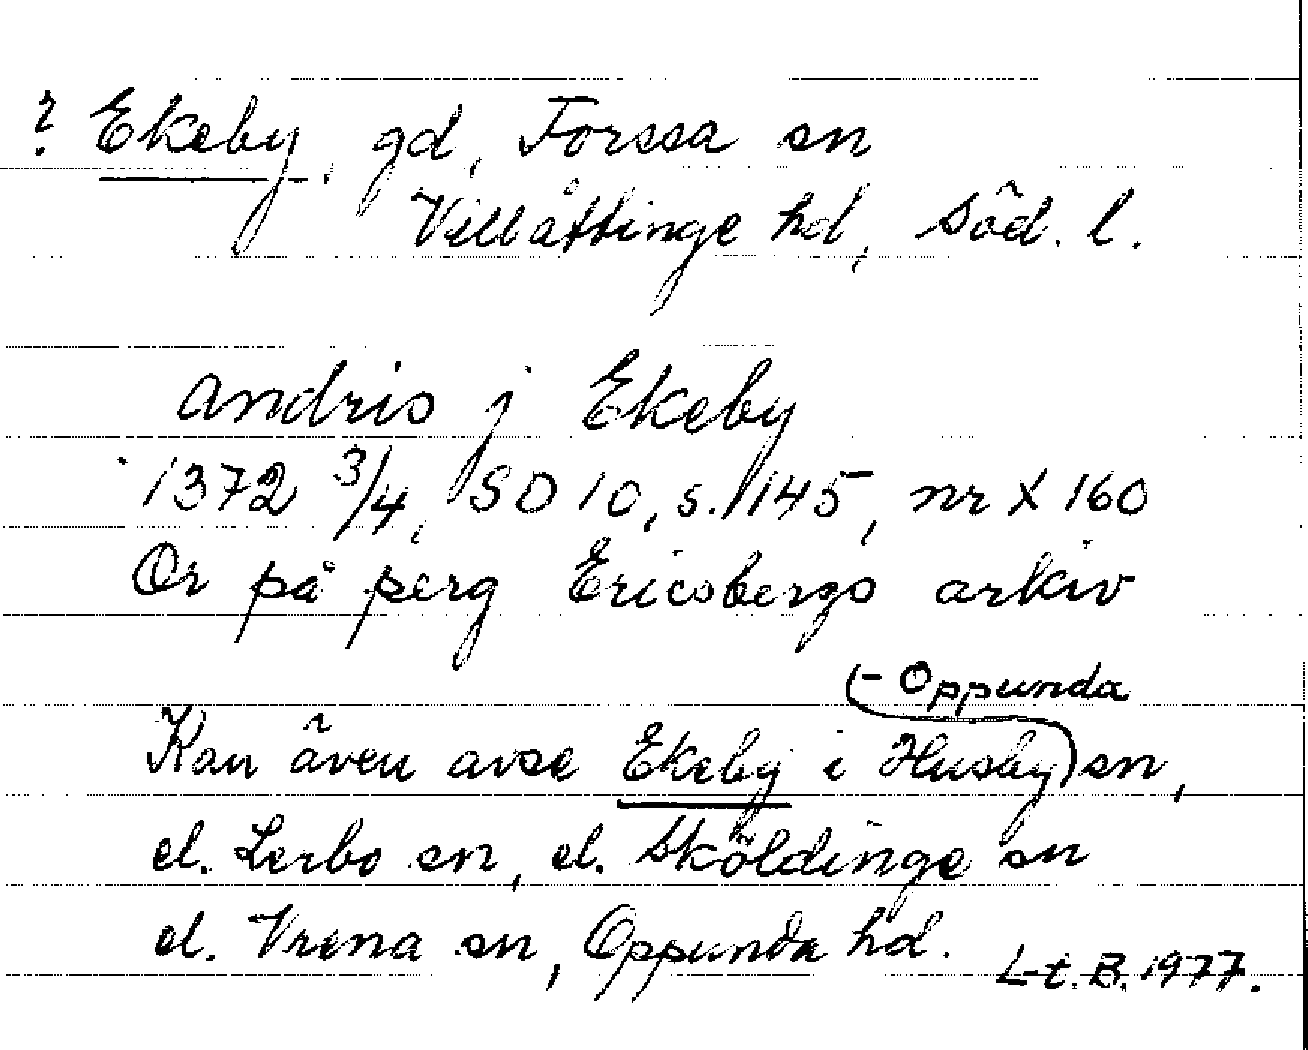 ? Ekeby, gd, Forssa sn
Villåttinge hd, Söd. l.
Andris j Ekeby
1372 3/4, SD 10, s. 145, nr X 160
Or på perg Ericsbergs arkiv
- Oppunda
Kan även avse Ekeby i Husby sn,
el. Lerbo sn, el. Sköldinge sn
el. Vrena sn, Oppunda hd.
L-t. B. 1977.